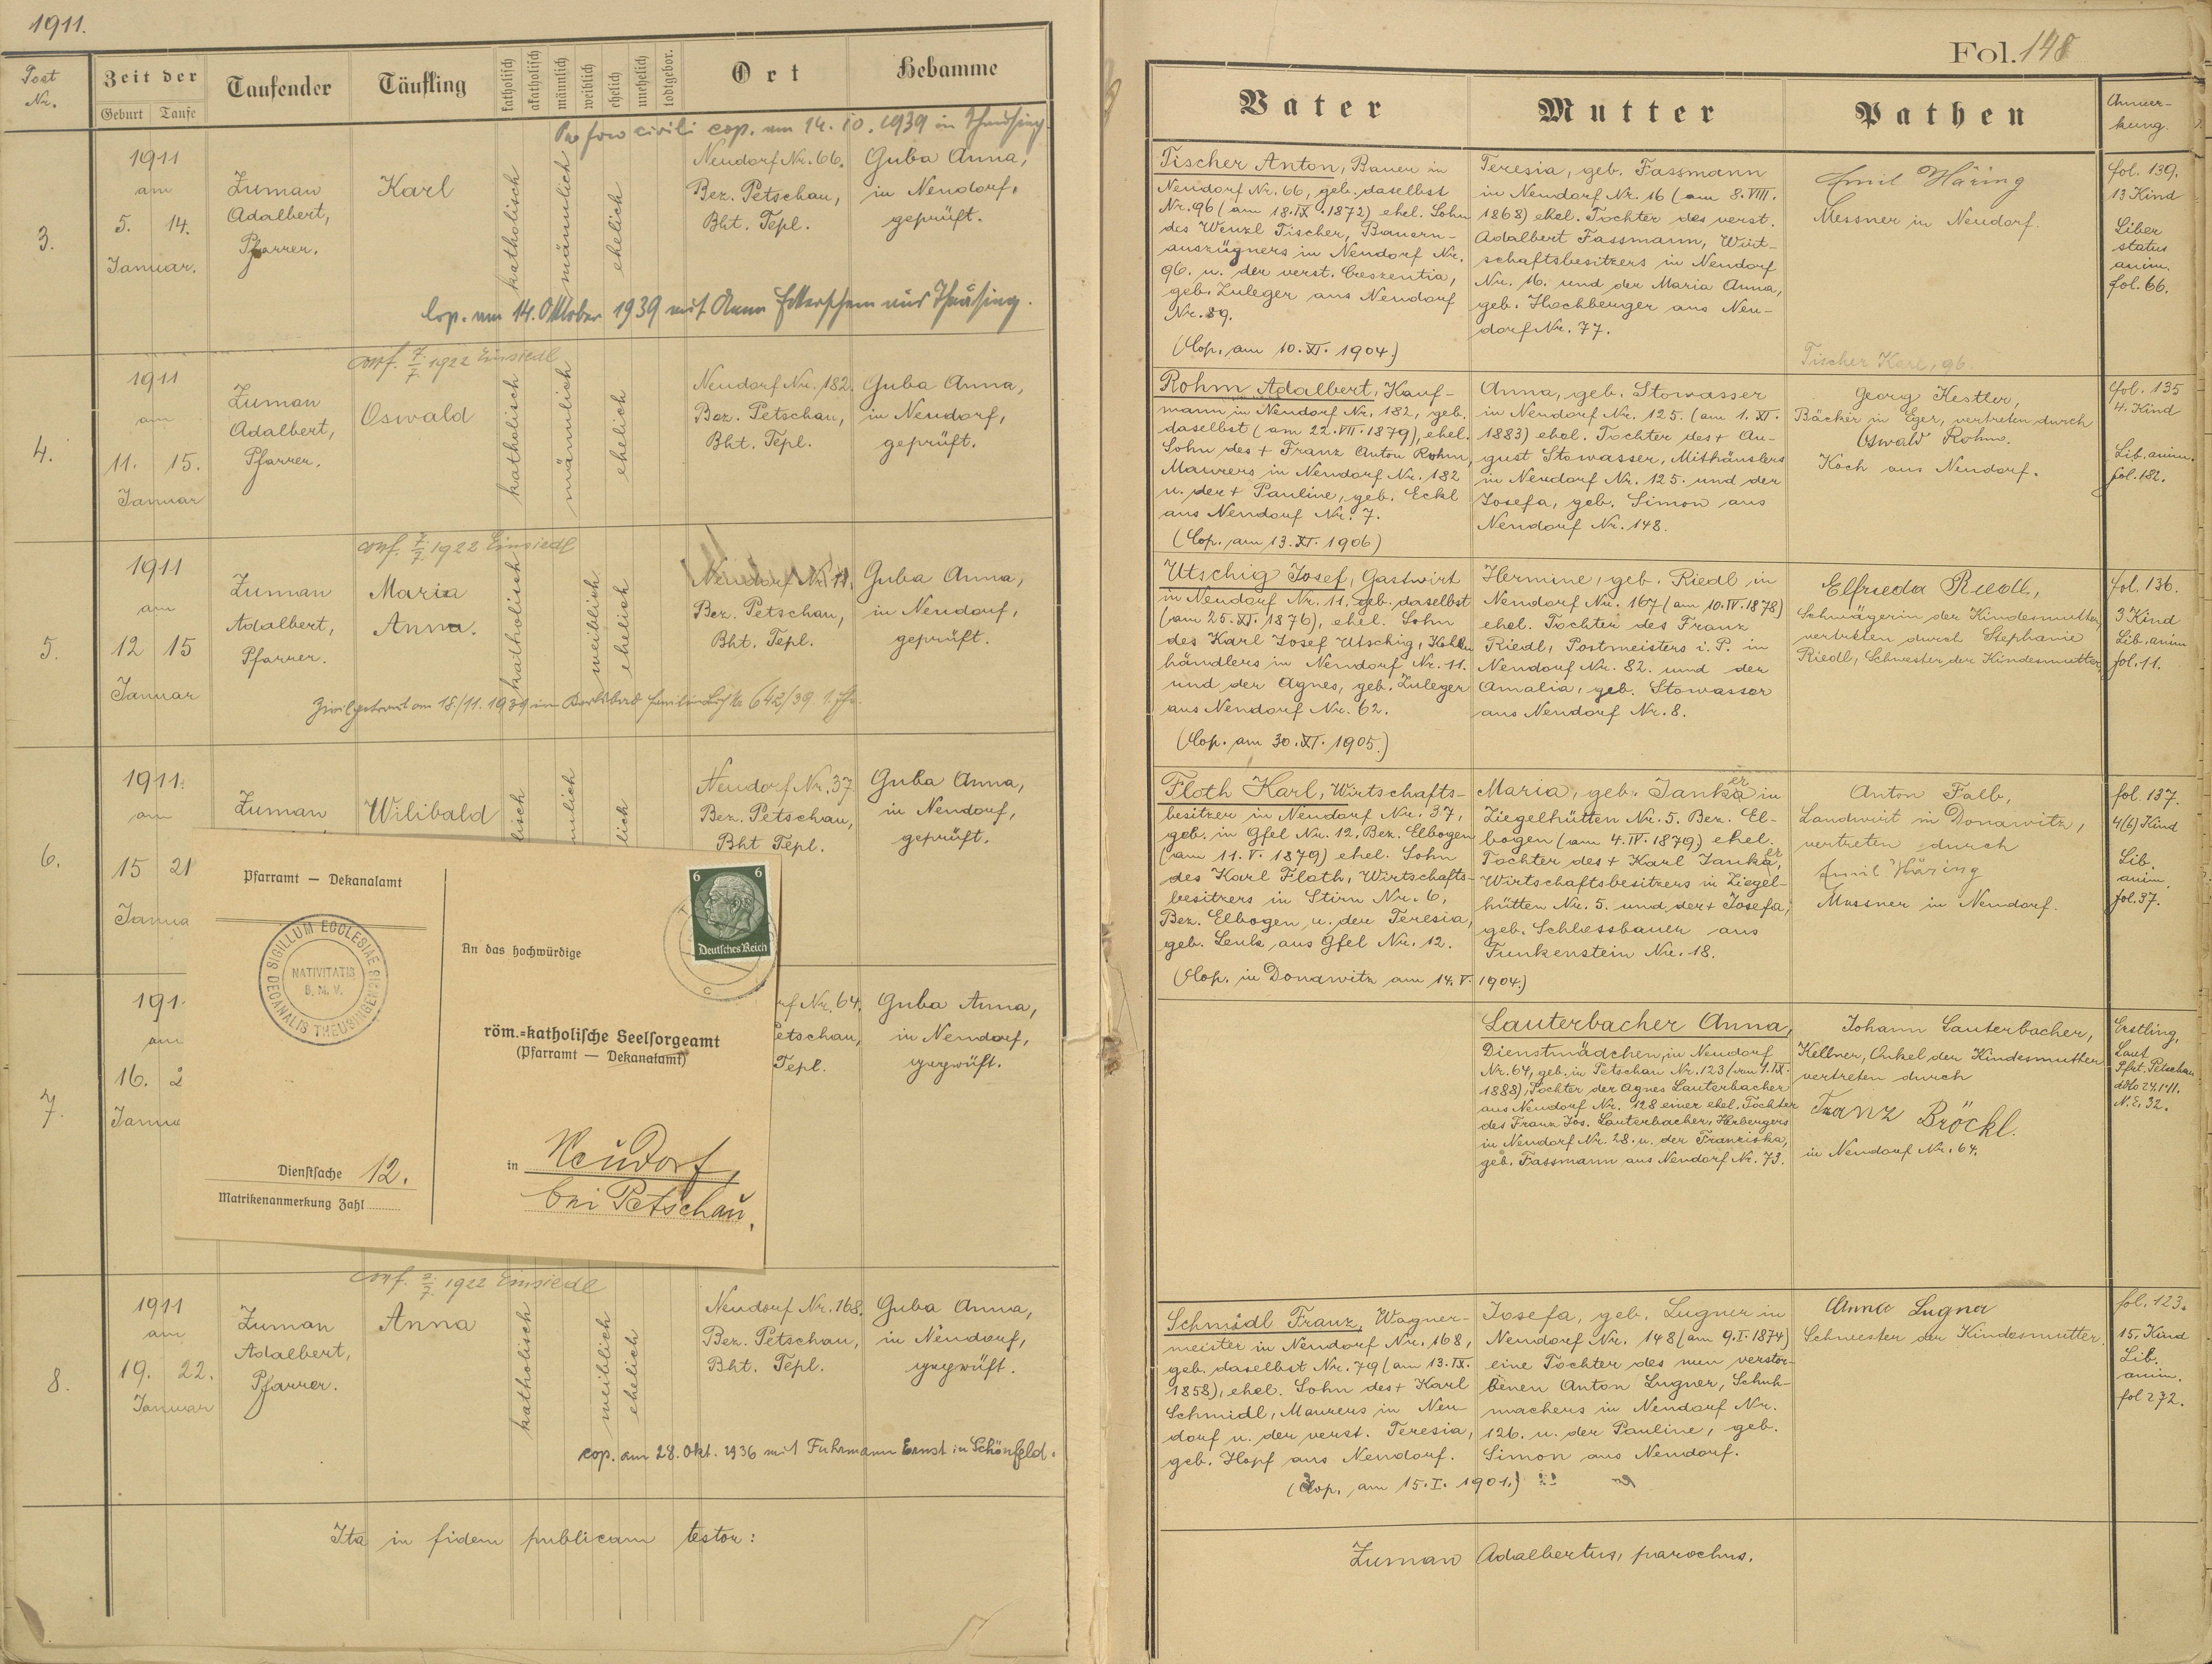 1911.
Post Nr.
Zeit der
Geburt
Taufe
Taufender
Täufling
katholisch
akatholisch
männlich
weiblich
ehelich
unehelich
todtgebor.
Ort
Hebamme
Pro foro civili cop. am 14.10.1939 in Theusing
3.
1911
am
5. 14.
Januar.
Zuman
Adalbert,
Pfarrer.
Karl
katholisch
männlich
ehelich
Neudorf Nr. 66.
Bez. Petschau,
Bht. Tepl.
Guba Anna,
in Neudorf,
geprüft.
Cop. am 14. Oktober 1939 mit Anna aus Theusing.
conf. 7./7. 1922 Einsiedl
4.
1911
am
11. 15.
Januar
Zuman
Adalbert,
Pfarrer.
Oswald
katholisch
männlich
ehelich
Neudorf Nr. 182.
Bez. Petschau,
Bht. Tepl.
Guba Anna,
in Neudorf,
geprüft.
conf. 7./7. 1922 Einsiedl
5.
1911
am
12 15
Januar
Zuman
Adalbert,
Pfarrer.
Maria
Anna.
katholisch
weiblich
ehelich
Neudorf Nr. 11.
Bez. Petschau,
Bht. Tepl.
Guba Anna,
in Neudorf,
geprüft.
Zivilgetraut am 18/11. 1939 in Karlsbad 642/39.
6.
1911.
am
15 21
Janua
Zuman
Wilibald
lisch
nlich
lich
Neudorf Nr. 37.
Bez. Petschau,
Bht Tepl.
Guba Anna,
in Neudorf,
geprüft.
Pfarramt — Dekanalamt
SIGILLUM ECCLESIAE DECANALIS THEUSINGENSIS
NATIVITATIS
B. M. V.
Dienstsache 12.
Matrikenanmerkung Zahl
6 6
Deutsches Reich
An das hochwürdige
röm.-katholische Seelsorgeamt
(Pfarramt — Dekanalamt)
in Neudorf,
bei Petschau.
7.
191
am
16. 2
Janua
rf Nr. 64.
etschau,
Tepl.
Guba Anna,
in Neudorf,
geprüft.
conf. 7. 1922 Einsiedl
8.
1911
am
19. 22.
Januar
Zuman
Adalbert,
Pfarrer.
Anna
katholisch
weiblich
ehelich
Neudorf Nr. 168.
Bez. Petschau,
Bht. Tepl.
Guba Anna,
in Neudorf,
geprüft.
cop. am 28. Okt. 1936 mit Fuhrmann Ernst in Schönfeld.
Ita in fidem publicam testor:
Fol. 148
Vater
Mutter
Pathen
Anmer-
kung.
Tischer Anton, Bauer in
Neudorf Nr. 66, geb. daselbst
Nr. 96 (am 18.IX.1872) ehel. Sohn
des Wenzl Tischer, Bauern-
auszügners in Neudorf Nr.
96. u. der verst. Creszentia,
geb. Zuleger aus Neudorf
Nr. 89.
(Cop. am 10.XI.1904.)
Teresia, geb. Fassmann
in Neudorf Nr. 16 (am 8.VIII.
1868) ehel. Tochter des verst.
Adalbert Fassmann, Wirt-
schaftsbesitzers in Neudorf
Nr. 16. und der Maria Anna,
geb. Hochberger aus Neu-
dorf Nr. 77.
Emil Häring
Messner in Neudorf.
Tischer Karl, 96.
fol. 139.
13 Kind
Liber
status
anim.
fol. 66.
Rohm Adalbert, Kauf-
mann in Neudorf Nr. 182, geb.
daselbst (am 22.VII.1879), ehel.
Sohn des + Franz Anton Rohm,
Maurers in Neudorf Nr. 182
u. der + Pauline, geb. Eckl
aus Neudorf Nr. 7.
(Cop. am 13.XI.1906)
Anna, geb. Stowasser
in Neudorf Nr. 125. (am 1.XI.
1883) ehel. Tochter des + Au-
gust Stowasser, Mithäuslers
in Neudorf Nr. 125. und der
Josefa, geb. Simon aus
Neudorf Nr. 148.
Georg Kestler,
Bäcker in Eger, vertreten durch
Oswald Rohm.
Koch aus Neudorf.
fol. 135
4. Kind
Lib. anim.
fol. 182.
Utschig Josef, Gastwirt
in Neudorf Nr. 11. geb. daselbst
(am 25.XI.1876), ehel. Sohn
des Karl Josef Utschig,
händlers in Neudorf Nr. 11.
und der Agnes, geb. Zuleger
aus Neudorf Nr. 62.
(Cop. am 30.XI.1905.)
Hermine, geb. Riedl in
Neudorf Nr. 167 (am 10.IV.1878)
ehel. Tochter des Franz
Riedl, Postmeisters i. P. in
Neudorf Nr. 82. und der
Amalia, geb. Stowasser
aus Neudorf Nr. 8.
Elfrieda Riedl,
Schwägerin der Kindesmutter,
vertreten durch Stephanie
Riedl, Schwester der Kindesmutter.
fol. 136.
3 Kind
Lib. anim
fol. 11.
Floth Karl, Wirtschafts-
besitzer in Neudorf Nr. 37,
geb. in Gfel Nr. 12, Bez. Elbogen
(am 11.V.1879) ehel. Sohn
des Karl Floth, Wirtschafts-
besitzers in Stirn Nr. 6,
Bez. Elbogen u. der Teresia,
geb. Lenk aus Gfel Nr. 12.
(Cop. in Donawitz am 14.V.1904.)
Maria, geb. Janka er in
Ziegelhütten Nr. 5. Bez. El-
bogen (am 4.IV.1879) ehel.
Tochter des + Karl Janka er,
Wirtschaftsbesitzers in Ziegel-
hütten Nr. 5. und der + Josefa,
geb. Schlossbauer aus
Funkenstein Nr. 18.
Anton Falb,
Landwirt in Donawitz,
vertreten durch
Emil Häring
Messner in Neudorf.
fol. 137.
4(6) Kind
Lib.
anim.
fol. 37.
Lauterbacher Anna,
Dienstmädchen in Neudorf
Nr. 64, geb. in Petschau Nr. 123 (am 1.IX.
1888), Tochter der Agnes Lauterbacher
aus Neudorf Nr. 128 einer ehel. Tochter
des Franz Jos. Lauterbacher, Herbergers
in Neudorf Nr. 28. u. der Franziska,
geb. Fassmann aus Neudorf Nr. 73.
Johann Lauterbacher,
Kellner, Onkel der Kindesmutter
vertreten durch
Franz Bröckl.
in Neudorf Nr. 64.
Erstling,
Laut
Pfrt. Petschau
ddto 24.1.11.
N. E. 32.
Schmidl Franz, Wagner-
meister in Neudorf Nr. 168,
geb. daselbst Nr. 79 (am 13.IX.
1858), ehel. Sohn des + Karl
Schmidl, Maurers in Neu
dorf u. der verst. Teresia,
geb. Hopf aus Neudorf.
(Cop. am 15.I.1901.)
Josefa, geb. Lugner in
Neudorf Nr. 148 (am 9.I.1874)
eine Tochter des nun verstor-
benen Anton Lugner, Schuh-
machers in Neudorf Nr.
126. u. der Pauline, geb.
Simon aus Neudorf.
Anna Lugner
Schwester der Kindesmutter.
fol. 123.
15. Kind
Lib.
anim.
fol 272.
Zuman Adalbertus, parochus.